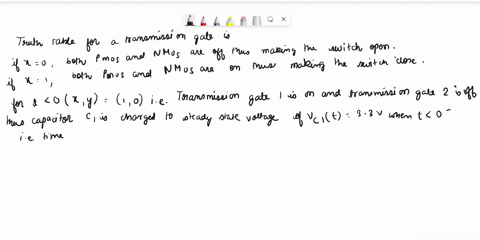 Truth table for a transmission gate is
if x = 0, both Pmos and NMOS are off thus making the switch open.
if x = 1, both Pmos and NMOS are on thus making the switch close.
for t < 0 (x, y) = (1, 0) i.e. Transmission gate 1 is on and transmission gate 2 is off
thus capacitor C1 is charged to steady state voltage of VC1(t) = 3.3V when t < 0 -
i.e time